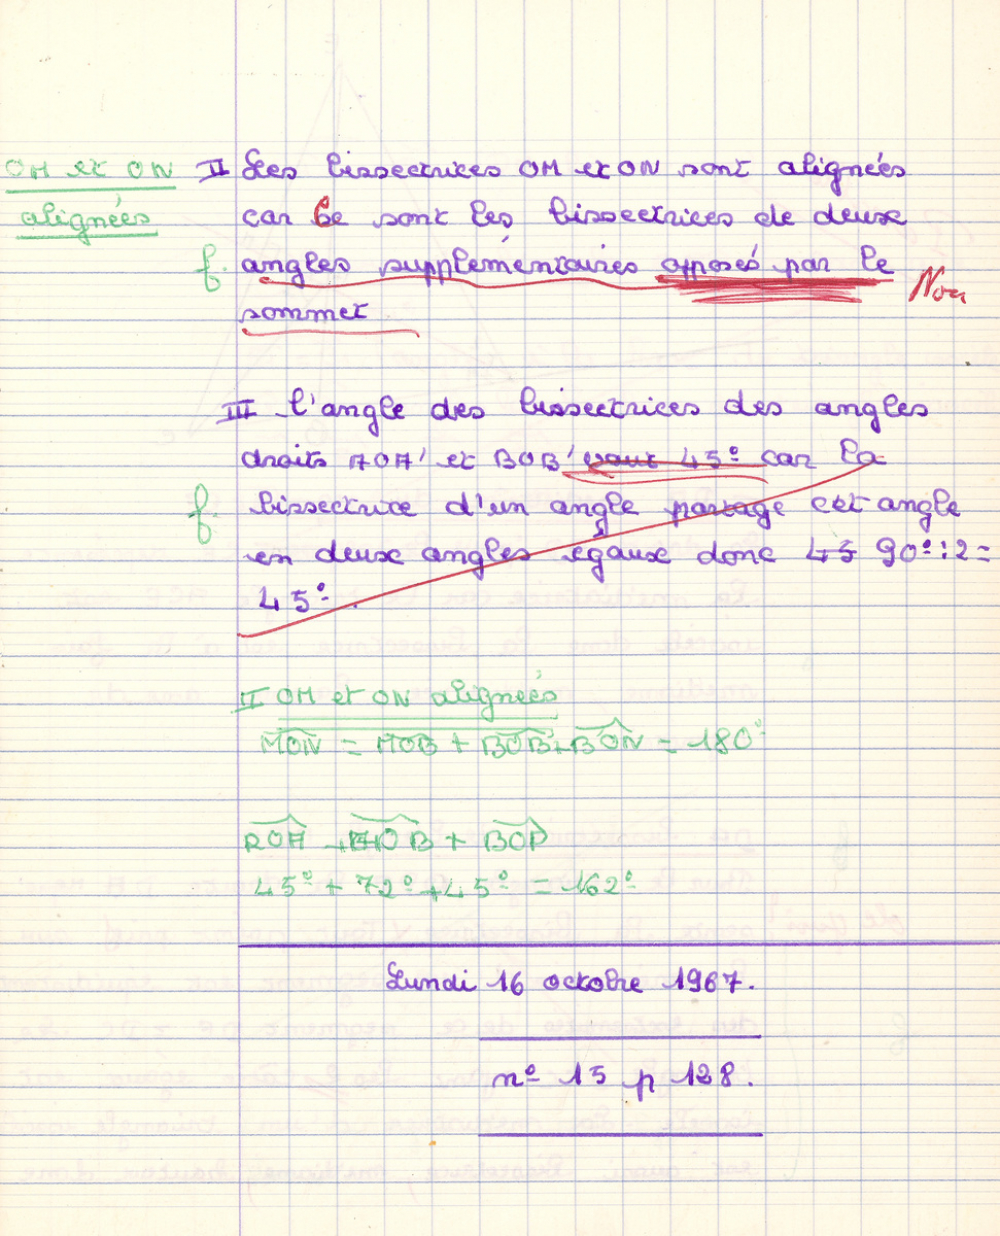 OM et ON
alignées
f.
II Les bissectrices OM et ON sont alignées
car ce sont les bissectrices de deux
angles supplémentaires opposés par le
Non
sommet
III L'angle des bissectrices des angles
droits AOA' et BOB' vaut 45° car la
f.
bissectrice d'un angle partage cet angle
en deux angles égaux donc 45 90° : 2 =
45°.
II OM et ON alignées
MON = MOB + BOB' + B'ON = 180°
ROA + AOB + BOP
45° + 72° + 45° = 162°
Lundi 16 octobre 1967.
n° 15 p 128.